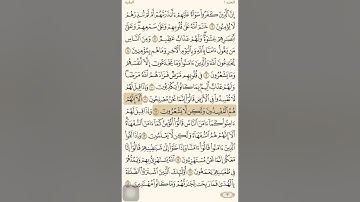 إِنَّ ٱلَّذِينَ كَفَرُوا۟ سَوَآءٌ عَلَيْهِمْ ءَأَنذَرْتَهُمْ أَمْ لَمْ تُنذِرْهُمْ
لَا يُؤْمِنُونَ ۝ خَتَمَ ٱللَّهُ عَلَىٰ قُلُوبِهِمْ وَعَلَىٰ سَمْعِهِمْ وَعَلَىٰٓ
أَبْصَٰرِهِمْ غِشَٰوَةٌ وَلَهُمْ عَذَابٌ عَظِيمٌ ۝ وَمِنَ ٱلنَّاسِ
مَن يَقُولُ ءَامَنَّا بِٱللَّهِ وَبِٱلْيَوْمِ ٱلْءَاخِرِ وَمَا هُم بِمُؤْمِنِينَ ۝
يُخَٰدِعُونَ ٱللَّهَ وَٱلَّذِينَ ءَامَنُوا۟ وَمَا يَخْدَعُونَ إِلَّآ أَنفُسَهُمْ
وَمَا يَشْعُرُونَ ۝ فِى قُلُوبِهِم مَّرَضٌ فَزَادَهُمُ ٱللَّهُ مَرَضًا
وَلَهُمْ عَذَابٌ أَلِيمٌۢ بِمَا كَانُوا۟ يَكْذِبُونَ ۝ وَإِذَا قِيلَ لَهُمْ
لَا تُفْسِدُوا۟ فِى ٱلْأَرْضِ قَالُوٓا۟ إِنَّمَا نَحْنُ مُصْلِحُونَ ۝ أَلَآ إِنَّهُمْ
هُمُ ٱلْمُفْسِدُونَ وَلَٰكِن لَّا يَشْعُرُونَ ۝ وَإِذَا قِيلَ لَهُمْ
ءَامِنُوا۟ كَمَآ ءَامَنَ ٱلنَّاسُ قَالُوٓا۟ أَنُؤْمِنُ كَمَآ ءَامَنَ ٱلسُّفَهَآءُ
أَلَآ إِنَّهُمْ هُمُ ٱلسُّفَهَآءُ وَلَٰكِن لَّا يَعْلَمُونَ ۝ وَإِذَا لَقُوا۟
ٱلَّذِينَ ءَامَنُوا۟ قَالُوٓا۟ ءَامَنَّا وَإِذَا خَلَوْا۟ إِلَىٰ شَيَٰطِينِهِمْ قَالُوٓا۟ إِنَّا
مَعَكُمْ إِنَّمَا نَحْنُ مُسْتَهْزِءُونَ ۝ ٱللَّهُ يَسْتَهْزِئُ بِهِمْ وَيَمُدُّهُمْ
فِى طُغْيَٰنِهِمْ يَعْمَهُونَ ۝ أُو۟لَٰٓئِكَ ٱلَّذِينَ ٱشْتَرَوُا۟ ٱلضَّلَٰلَةَ
بِٱلْهُدَىٰ فَمَا رَبِحَت تِّجَٰرَتُهُمْ وَمَا كَانُوا۟ مُهْتَدِينَ ۝